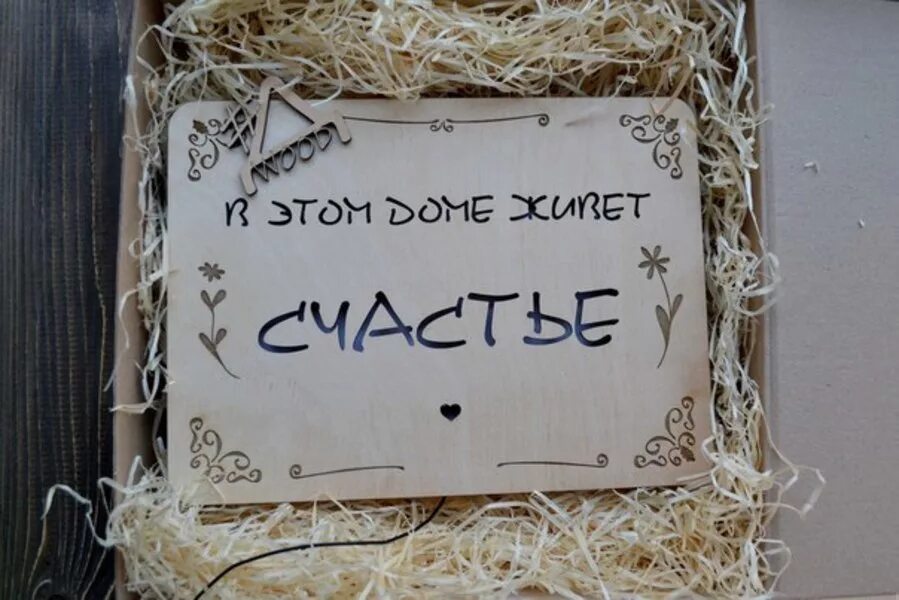 #A
WOOD
В ЭТОМ ДОМЕ ЖИВЕТ
СЧАСТЬЕ